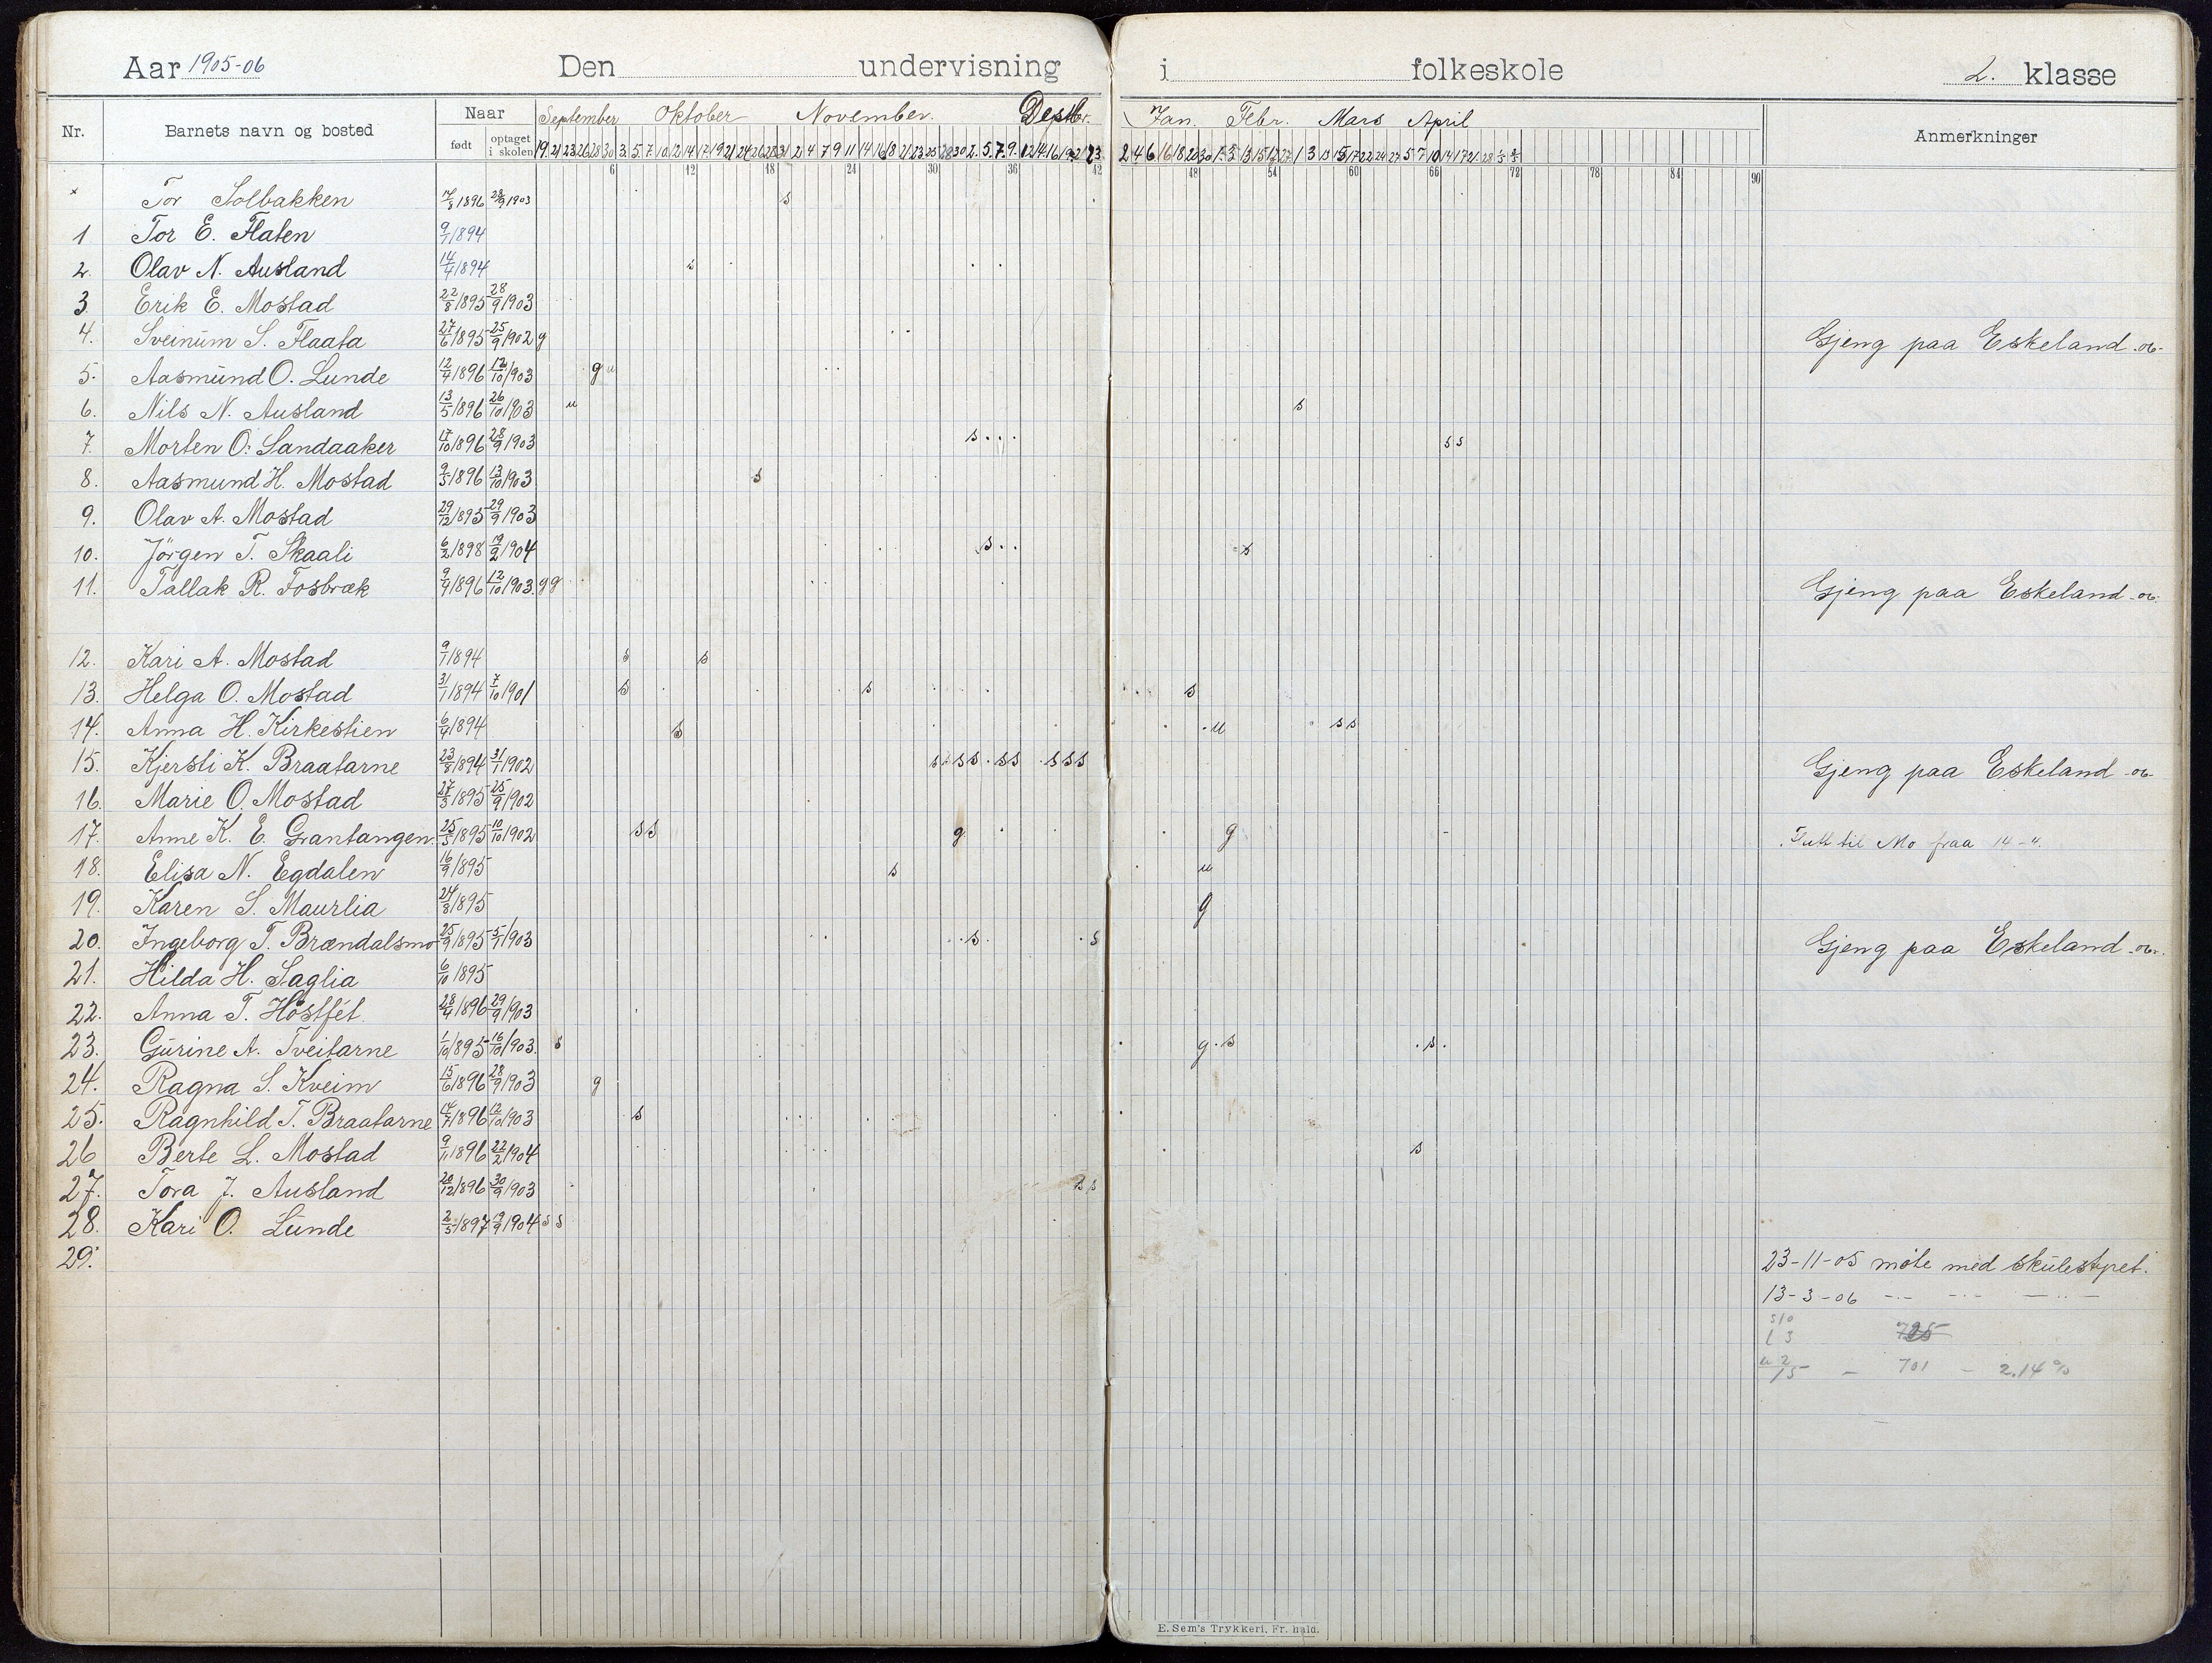 Aar 1905-06 Den undervisning i folkeskole 2. klasse
Nr. Barnets navn og bosted Naar født optaget i skolen September Oktober November. Desbr. Jan. Febr. Mars April Anmerkninger
6 12 18 24 30 36 42 48 54 60 66 72 78 84 90
× Tor Solbakken 17/8 1896 28/9 1903 s
1 Tor E. Flaten 9/1 1894
2. Olav N. Ausland 14/4 1894 s
3 Erik E. Mostad 22/8 1895 28/9 1903
4. Sveinum S. Flaata 27/6 1895 25/9 1902 g Gjeng paa Eskeland -06-
5. Aasmund O. Lunde 12/4 1896 12/10 1903 g u
6. Nils N. Ausland 13/5 1896 26/10 1903 u s
7. Morten O. Sandaaker 17/10 1896 28/9 1903 s s s
8. Aasmund H. Mostad 9/5 1896 13/10 1903 s
9. Olav A. Mostad 29/12 1895 29/9 1903
10. Jörgen T. Skaali 6/2 1898 19/2 1904 s s
11. Tallak R. Fosbræk 9/4 1896 12/10 1903. g g Gjeng paa Eskeland -06-
12. Kari A. Mostad 9/1 1894 s s
13. Helga O. Mostad 31/1 1894 7/10 1901 s s s
14. Anna H. Kirkestien 6/4 1894 s u s s
15. Kjersti K. Braatarne 23/8 1894 31/1 1902 s s s s s s s s s Gjeng paa Eskeland -06-
16. Marie O. Mostad 27/3 1895 25/9 1902
17. Anne K. E. Grantangen. 25/5 1895 10/10 1902 s s g g Flutt til Mo fraa 14-4.
18. Elisa N. Egdalen 16/9 1895 s u
19. Karen S. Maurlia 24/8 1895 g
20. Ingeborg T. Brændalsmo 25/9 1895 5/1 1903 s s Gjeng paa Eskeland -06-
21. Hilda H. Saglia 6/10 1895
22. Anna T. Höstfet 28/4 1896 29/9 1903
23. Gurine A. Tveitarne 1/10 1895 16/10 1903. s g s s
24. Ragna S. Kveim 15/6 1896 28/9 1903 g
25. Ragnhild T. Braatarne 14/7 1896 12/10 1903 s
26 Berte L. Mostad 9/11 1896 22/2 1904 s
27. Tora J. Ausland 20/12 1896 30/9 1903 s s
28. Kari O. Lunde 2/5 1897 19/9 1904 s s
29.
23-11-05 möte med skulestyret.
13-3-06 -·- -·- -··-
s 10
l 3 725
u 2
15 - 701 - 2.14%
E. Sem's Trykkeri, Fr. hald.